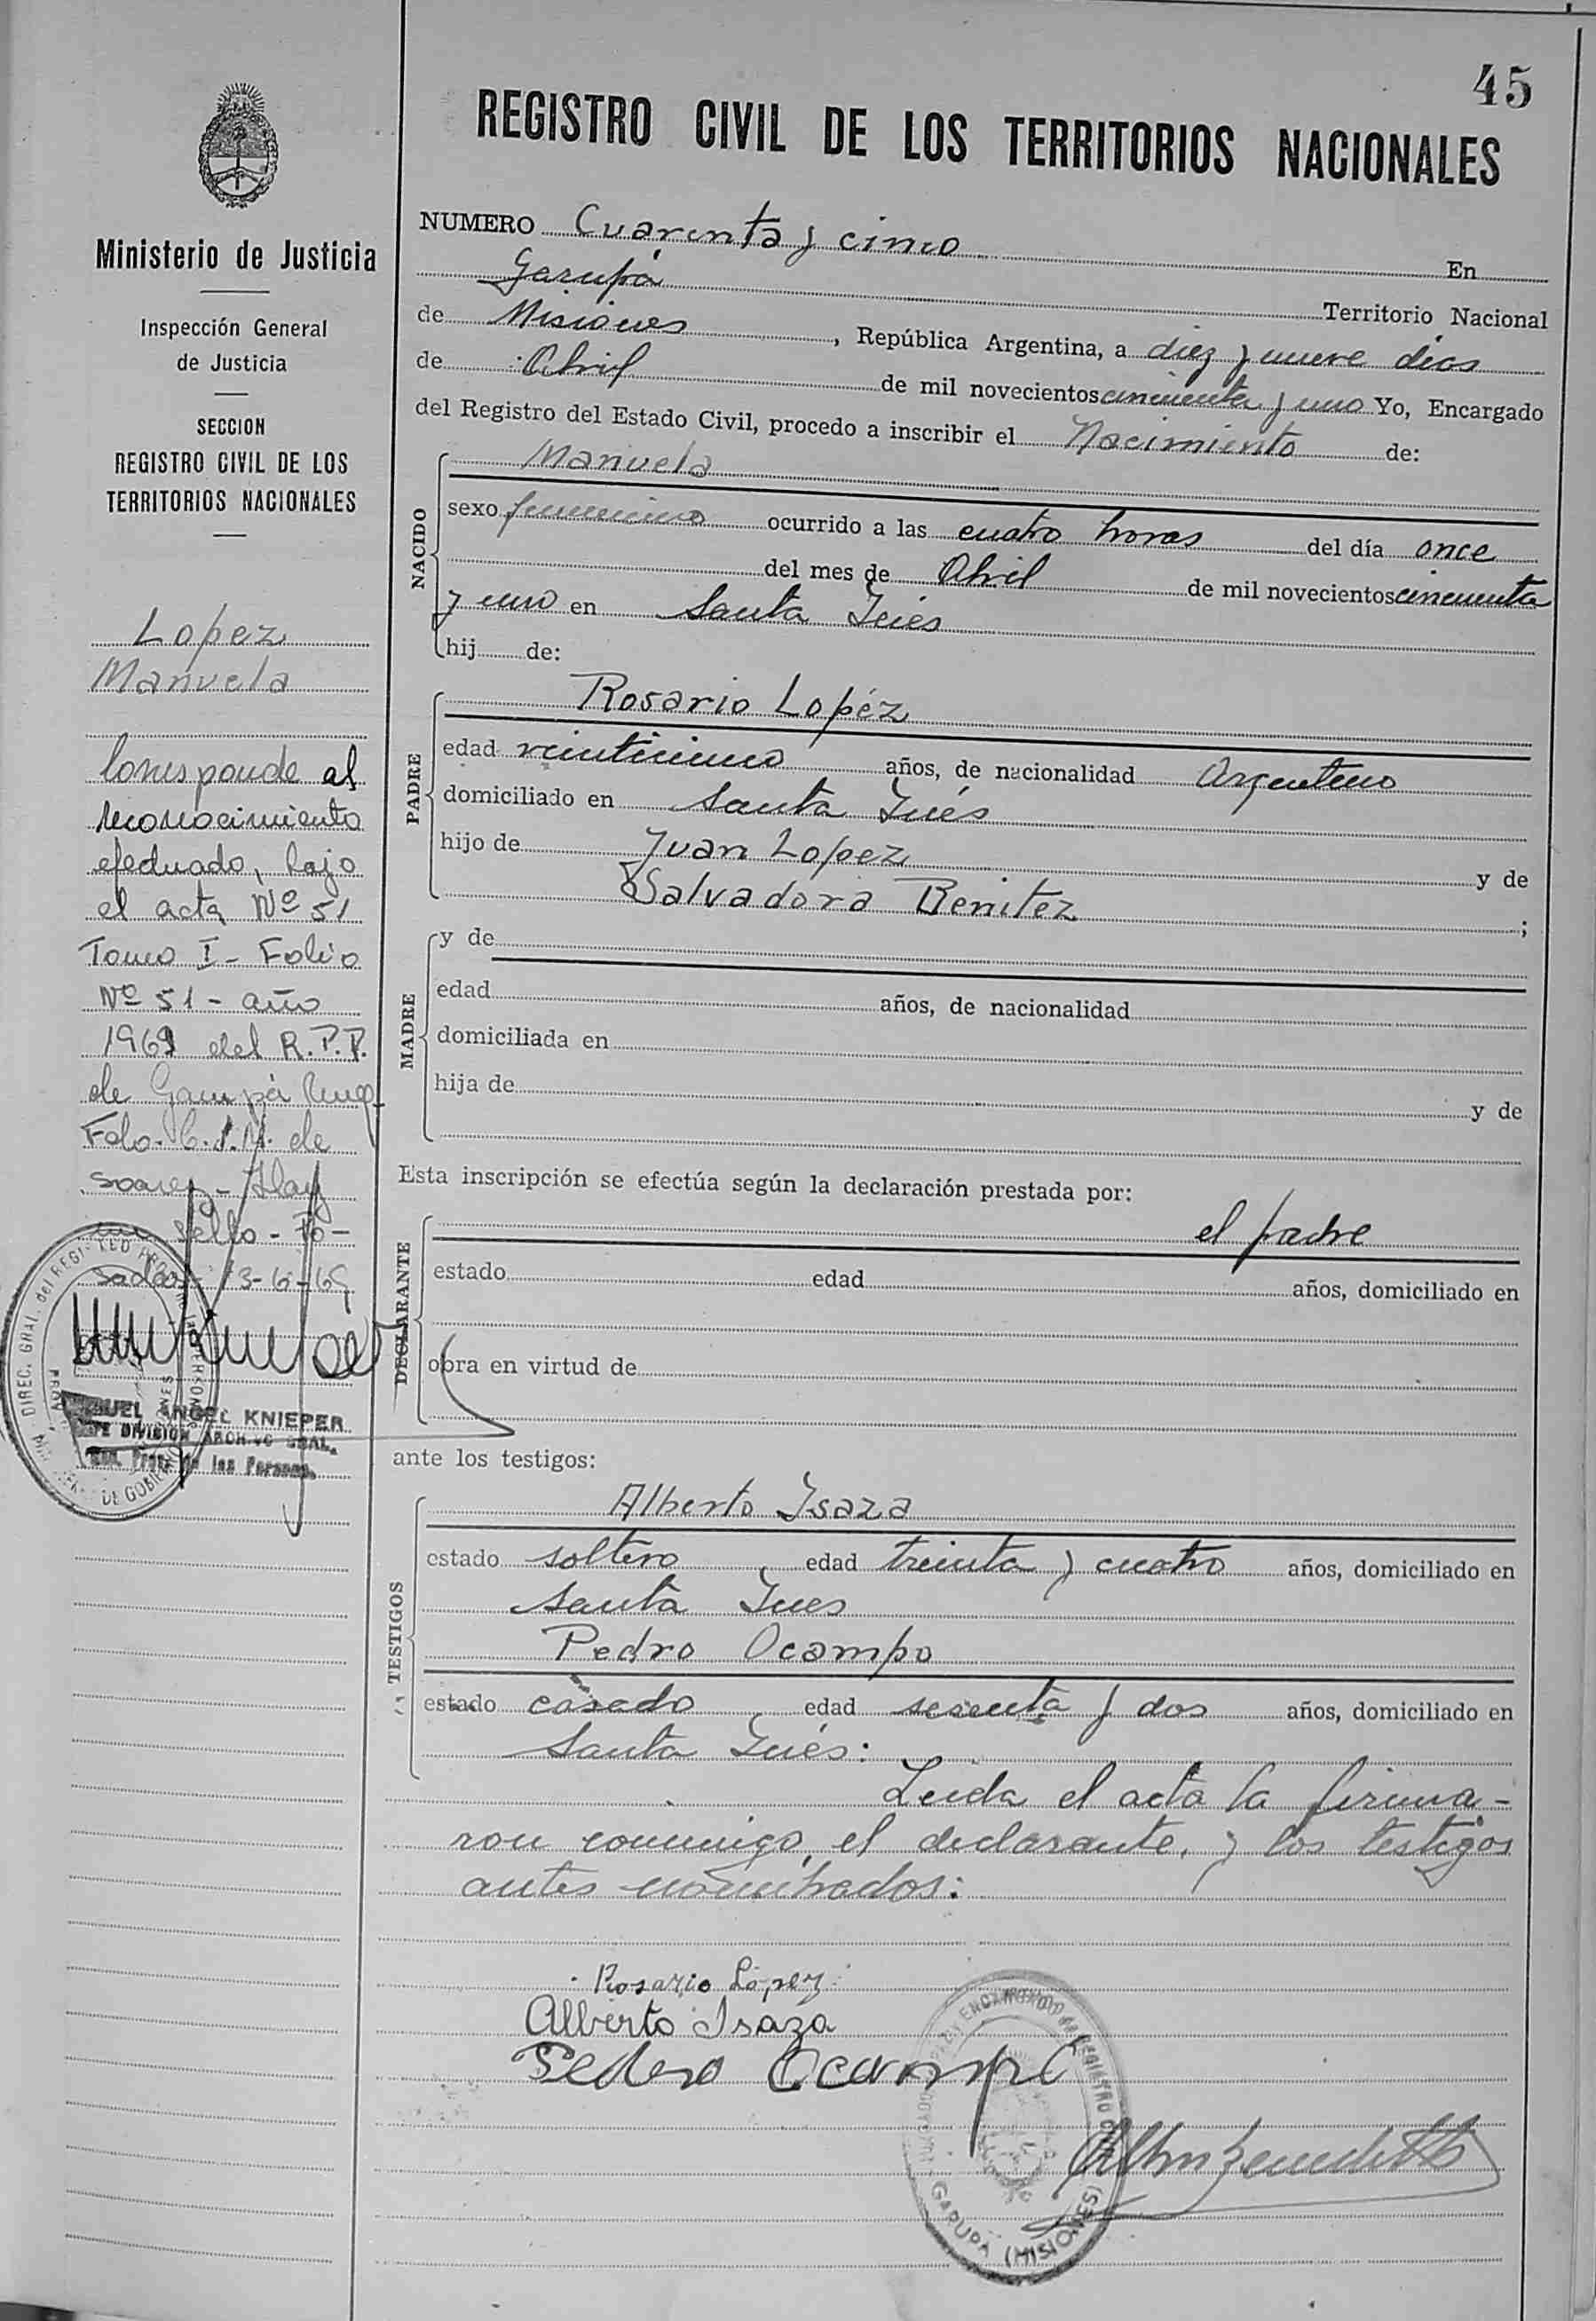 45
REGISTRO CIVIL DE LOS TERRITORIOS NACIONALES
Ministerio de Justicia
Inspección General
de Justicia
SECCION
REGISTRO CIVIL DE LOS
TERRITORIOS NACIONALES
Lopez
Manuela
Corresponde al
reconocimiento
efectuado, bajo
el acta Nº 51
Tomo I - Folio
Nº 51 - año
1969 del R.P.P.
de Garupá
Fdo. de
Soarez - Hay
un sello - Po-
sadas 13-6-69
DIREC. GRAL. del REGISTRO
DE GOBIERNO
ANGEL KNIEPER
DIVISION ARCHIVO GRAL.
de las Personas
NUMERO Cuarenta y cinco En
Garupá Territorio Nacional
de Misiones, República Argentina, a diez y nueve dias
de Abril de mil novecientos cincuenta y uno Yo, Encargado
del Registro del Estado Civil, procedo a inscribir el Nacimiento de:
NACIDO
Manuela
sexo femenino ocurrido a las cuatro horas del día once
del mes de Abril de mil novecientos cincuenta
y uno en Santa Inés
hij de:
PADRE
Rosario Lopéz
edad veinticinco años, de nacionalidad Argentino
domiciliado en Santa Inés
hijo de Juan Lopez y de
Salvadora Benitez ;
MADRE
y de
edad años, de nacionalidad
domiciliada en
hija de y de
Esta inscripción se efectúa según la declaración prestada por:
DECLARANTE
el padre
estado edad años, domiciliado en
obra en virtud de
ante los testigos:
TESTIGOS
Alberto Isaza
estado soltero edad treinta y cuatro años, domiciliado en
Santa Ines
Pedro Ocampo
estado casado edad sesenta y dos años, domiciliado en
Santa Inés:
Leida el acta la firma-
ron conmigo, el declarante, y los testigos
antes nombrados:
Rosario López
Alberto Isaza
Pedro Ocampo
ENCARGADO del REGISTRO
GARUPÁ (MISIONES)